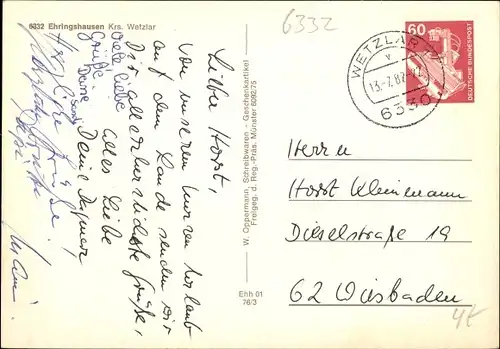 6332 Ehringshausen Krs. Wetzlar
6332
60
DEUTSCHE BUNDESPOST
WETZLAR
v
13.-7.82
6330
Lieber Horst,
von unserem kurzen Urlaub
auf dem Lande senden wir
Dir allerherzlichste Grüße,
alles Liebe
Deine Dagmar
viele liebe
Grüße
Deine
Herzliche Grüße
W. Oppermann, Schreibwaren - Geschenkartikel
Freigeg. d. Reg.-Präs. Münster 6092/75
Ehh 01
76/3
Herrn
Horst Kleinemann
Dieselstraße 19
62 Wiesbaden